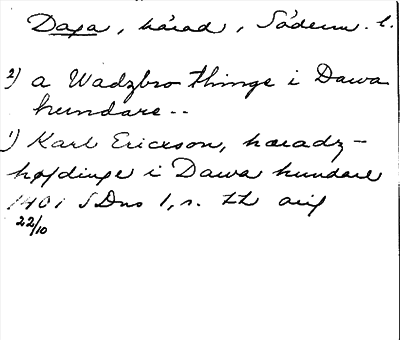 Daga, härad, Söderm. l.
2) a Wadzbro thinge i Dawa
hundare..
1) Karl Ericson, hæradz-
høfdinge i Dawa hundare
1401 SDns 1, s.
22/10